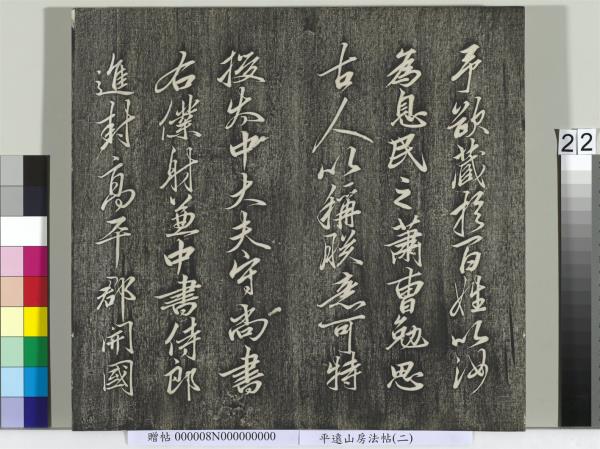 予欲藏於百姓以汝
為息民之蕭曹勉思
古人以稱朕意可特
授太中大夫守尚書
右僕射兼中書侍郎
進封高平郡開國
22
贈帖 000008N000000000 平遠山房法帖(二)